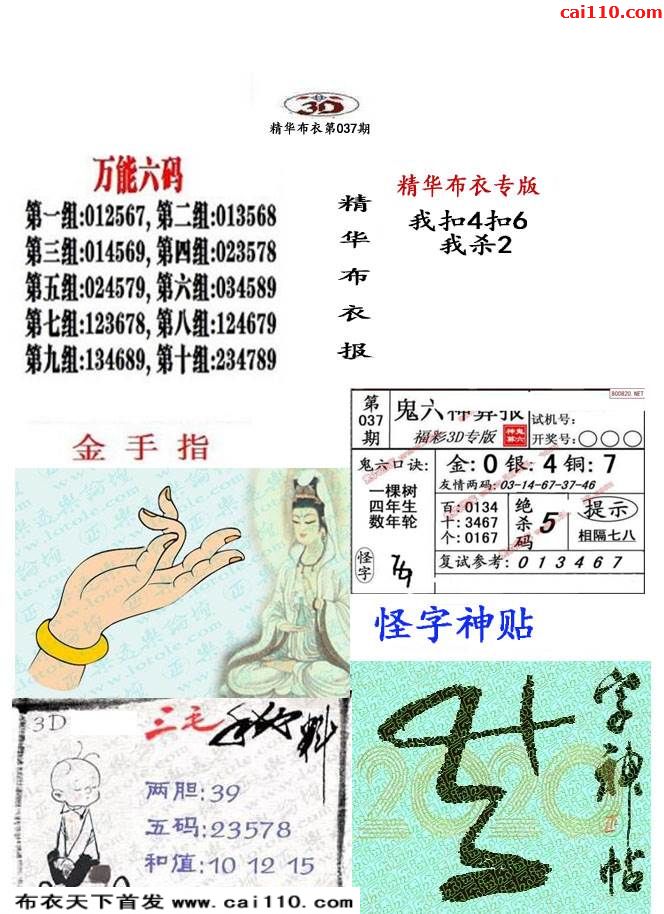 cai110.com
3D
精华布衣第037期
万能六码
第一组:012567, 第二组:013568
第三组:014569, 第四组:023578
第五组:024579, 第六组:034589
第七组:123678, 第八组:124679
第九组:134689, 第十组:234789
精华布衣报
精华布衣专版
我扣4扣6
我杀2
金手指
800820.NET
第037期
鬼六神算报
福彩3D专版
神鬼算六
试机号:
开奖号:○○○
鬼六口诀:
一棵树
四年生
数年轮
金:0 银:4 铜:7
友情两码:03-14-67-37-46
百:0134
十:3467
个:0167
绝杀码
5
提示
相隔七八
怪字
复试参考: 0 1 3 4 6 7
怪字神贴
3D
三毛
料
两胆:39
五码:23578
和值:10 12 15
字神帖
2020
布衣天下首发 www.cai110.com